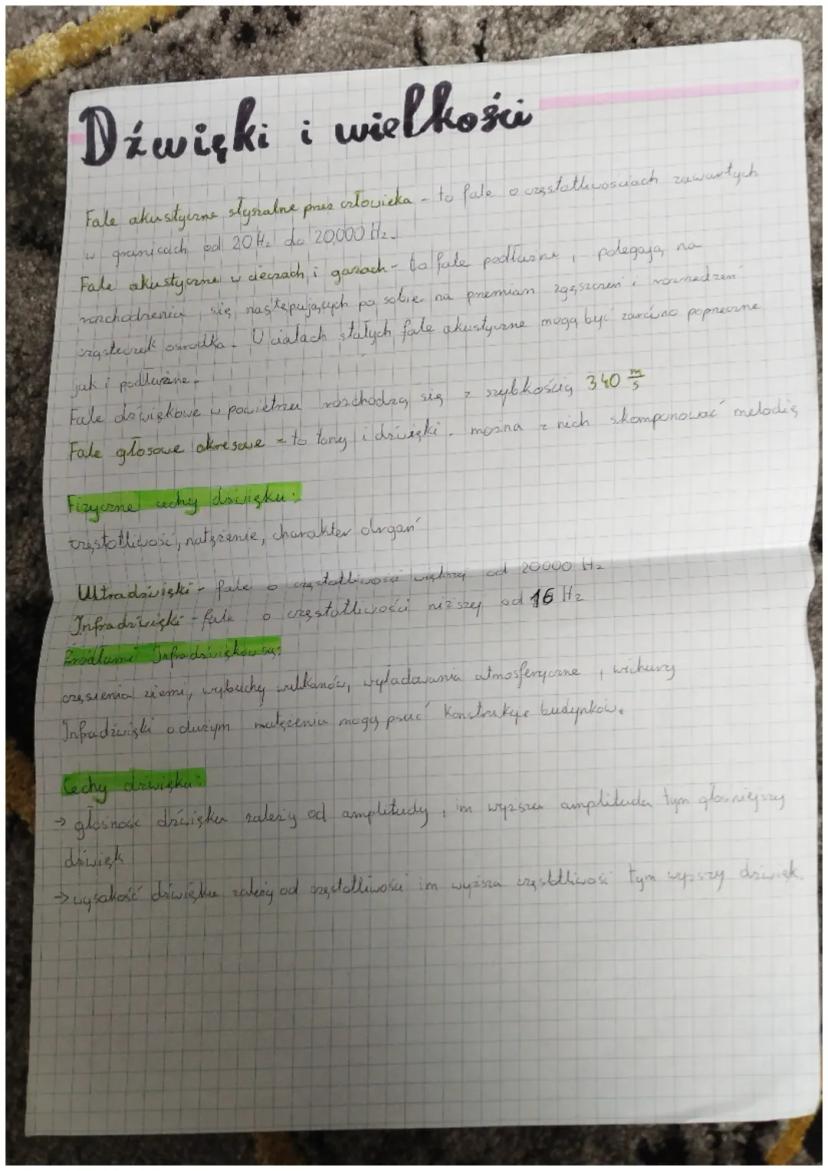 Dźwięki i wielkości
Fale akustyczne słyszalne przez człowieka - to fale o częstotliwosciach zawartych
w granicach od 20 Hz do 20000 Hz.
Fale akustyczne w cieczach i gazach - to fale podłużne, polegają na
rozchodzeniu się następujących po sobie na przemian zgęszczeń i rozrzedzeń
cząsteczek ośrodka. W ciałach stałych fale akustyczne mogą być zarówno poprzeczne
jak i podłużne.
Fale dźwiękowe w powietrzu rozchodzą się z szybkością 340 m/s
Fale głosowe okresowe - to tony i dźwięki. można z nich skomponować melodię
Fizyczne cechy dźwięku:
częstotliwość, natężenie, charakter drgań
Ultradźwięki - fale o częstotliwości większej od 20000 Hz
Infradźwięki - fale o częstotliwości niższej od 16 Hz
Źródłami Infradźwięków są:
trzęsienia ziemi, wybuchy wulkanów, wyładowania atmosferyczne, wichury
Infradźwięki o dużym natężeniu mogą psuć konstrukcje budynków.
Cechy dźwięku:
→ głośność dźwięku zależy od amplitudy, im wyższa amplituda tym głośniejszy
dźwięk
→ wysokość dźwięku zależy od częstotliwości im wyższa częstotliwość tym wyższy dźwięk.